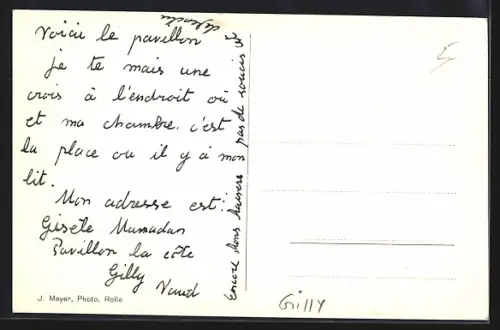 Voici le pavillon
je te mais une
crois à l'endroit ou
et ma chambre. c'est
la place ou il y à mon
lit.
Mon adresse est:
Gisèle Mamadan
Pavillon la côte
Gilly Vaud
Encore bons baisers pas de soucis
J. Mayer, Photo, Rolle
Gilly